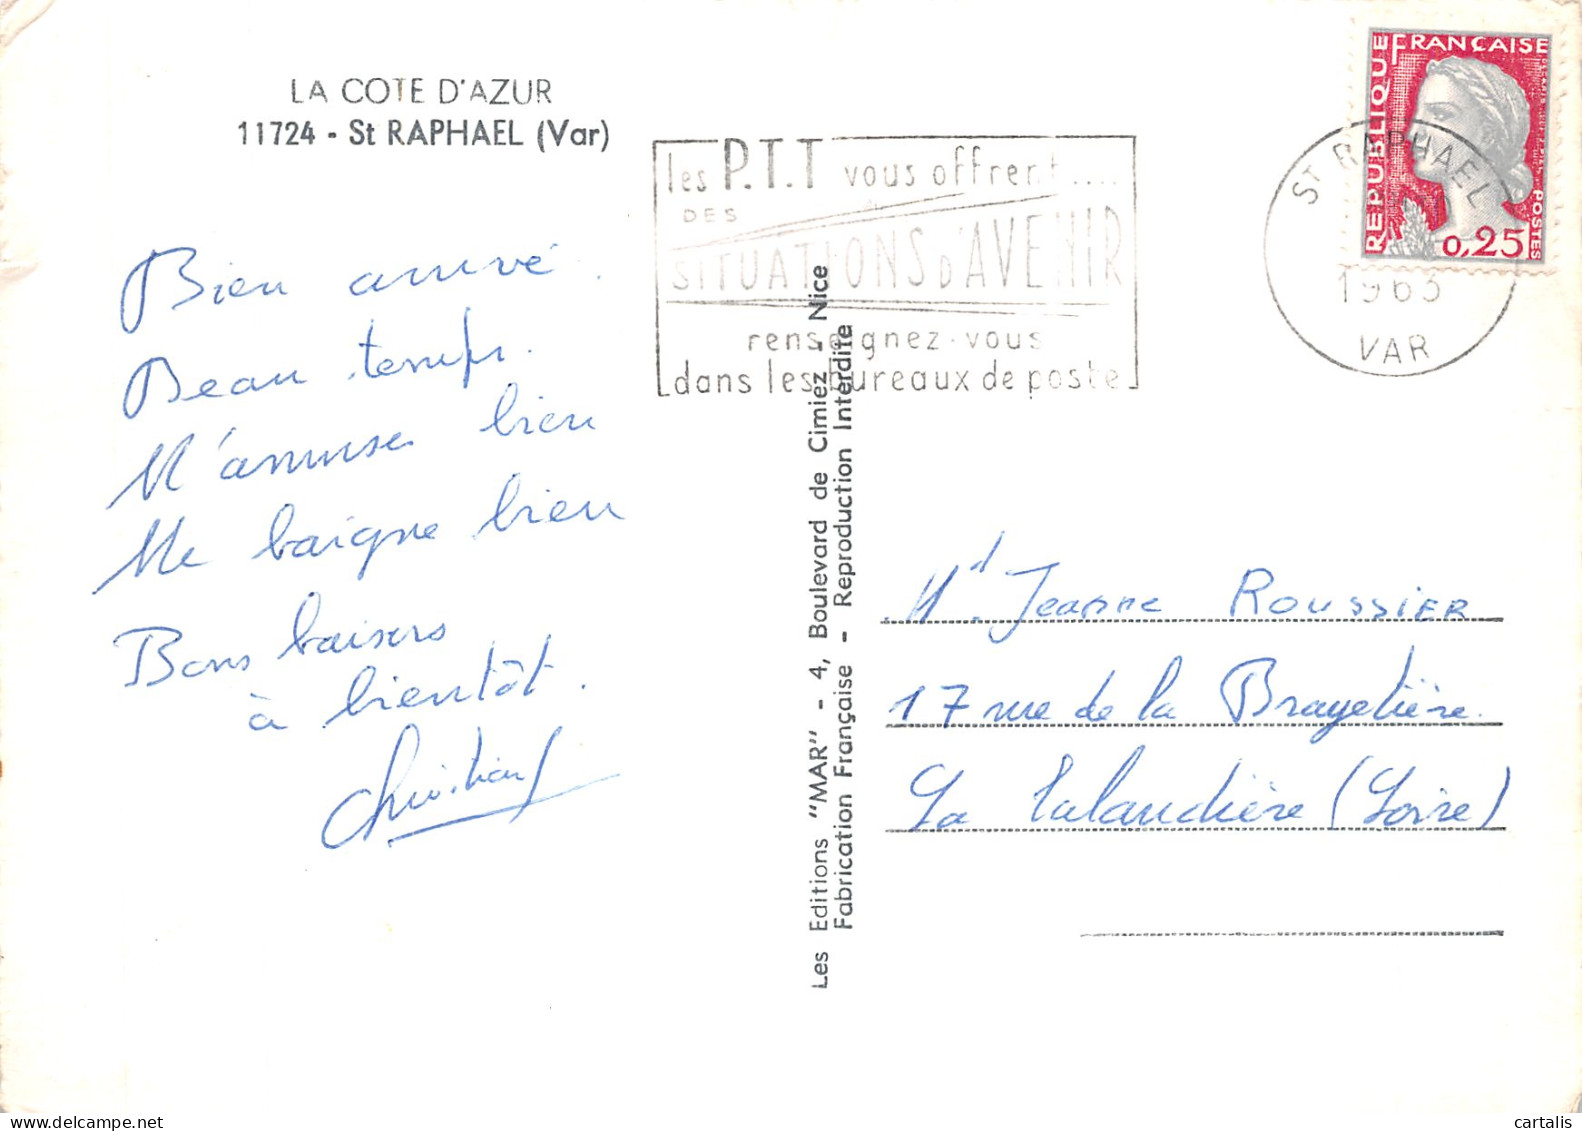 LA COTE D'AZUR
11724 - St RAPHAEL (Var)
Bien arrivé.
Beau temps.
M'amuse bien
Me baigne bien
Bons baisers
à bientôt.
Christian
les P.T.T vous offrent....
DES
SITUATIONS D'AVENIR
renseignez-vous
dans les bureaux de poste
Les Editions "MAR" - 4, Boulevard de Cimiez - Nice
Fabrication Française - Reproduction Interdite
REPUBLIQUE FRANÇAISE
POSTES
0,25
ST RAPHAEL
1963
VAR
Jeanne ROUSSIER
17 rue de la Brayetière.
La Talaudière (Loire)
cartalis